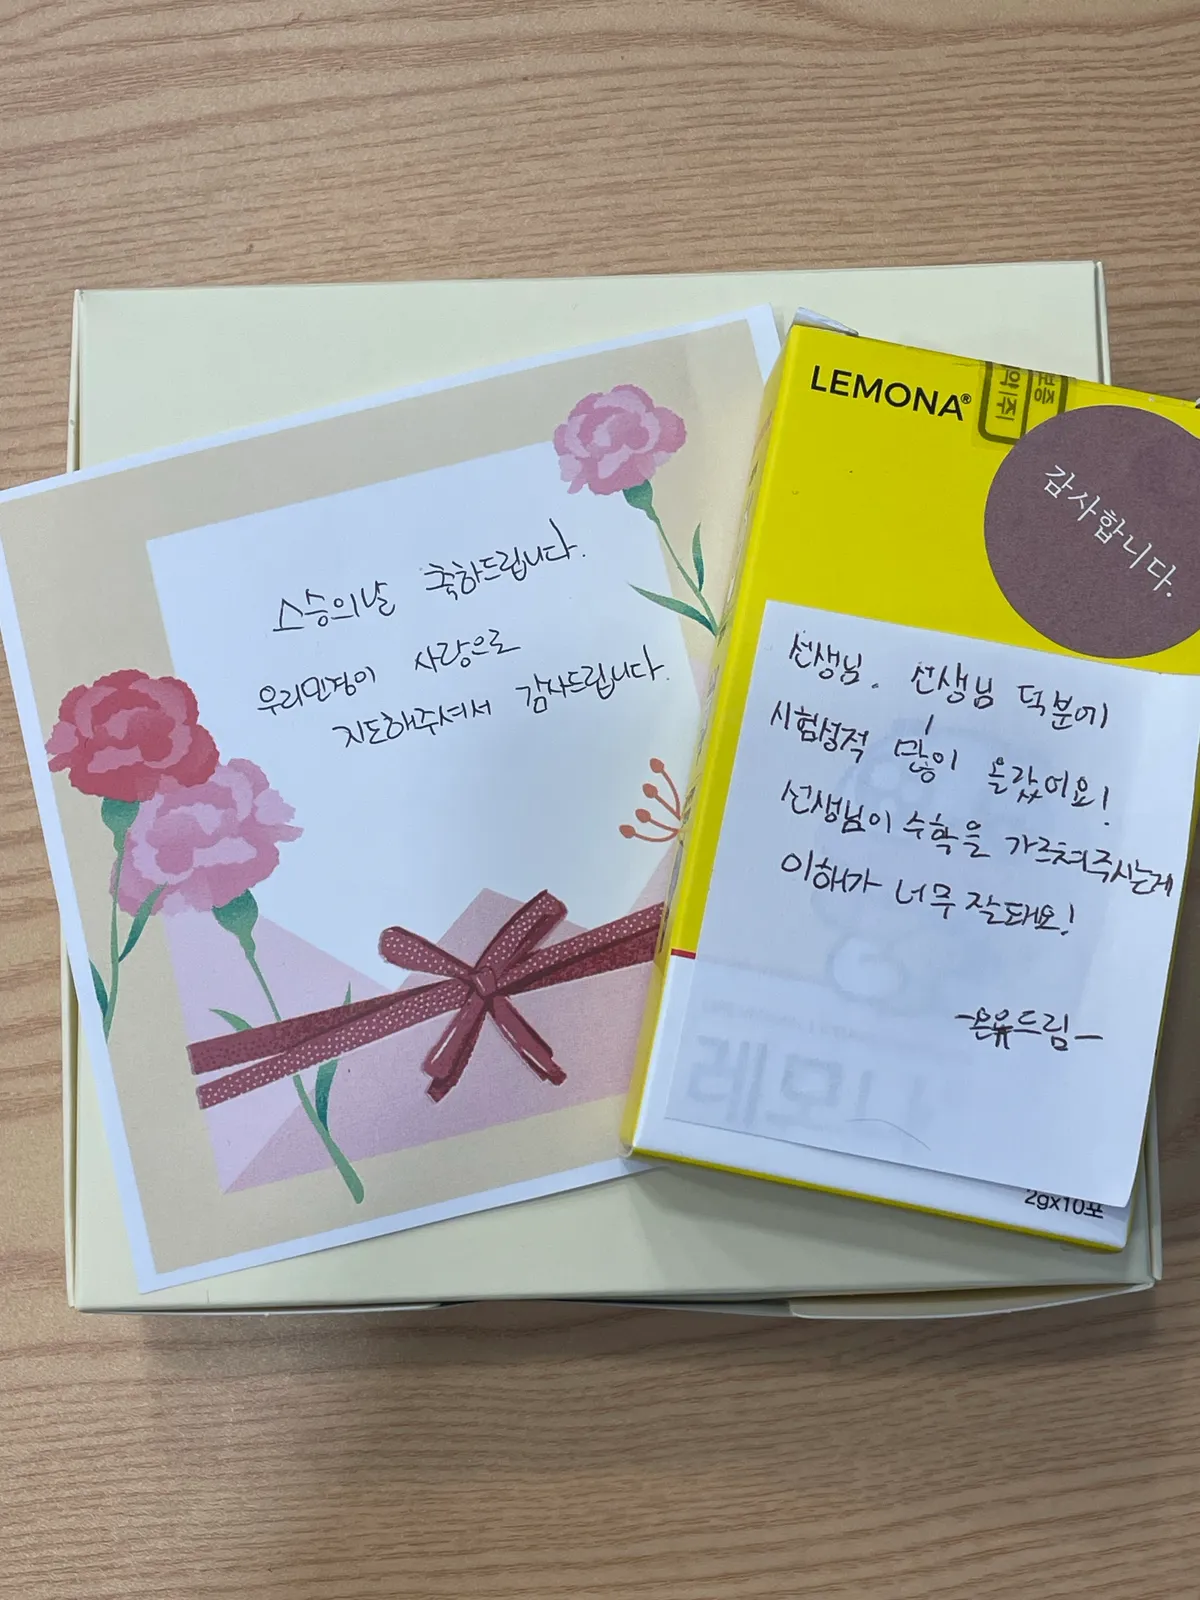 스승의날 축하드립니다.
우리민정이 사랑으로
지도해주셔서 감사드립니다.
LEMONA®
감사합니다.
선생님. 선생님 덕분에
시험성적 많이 올랐어요!
선생님이 수학을 가르쳐주시는게
이해가 너무 잘돼요!
드림-
레모나
2gx10포